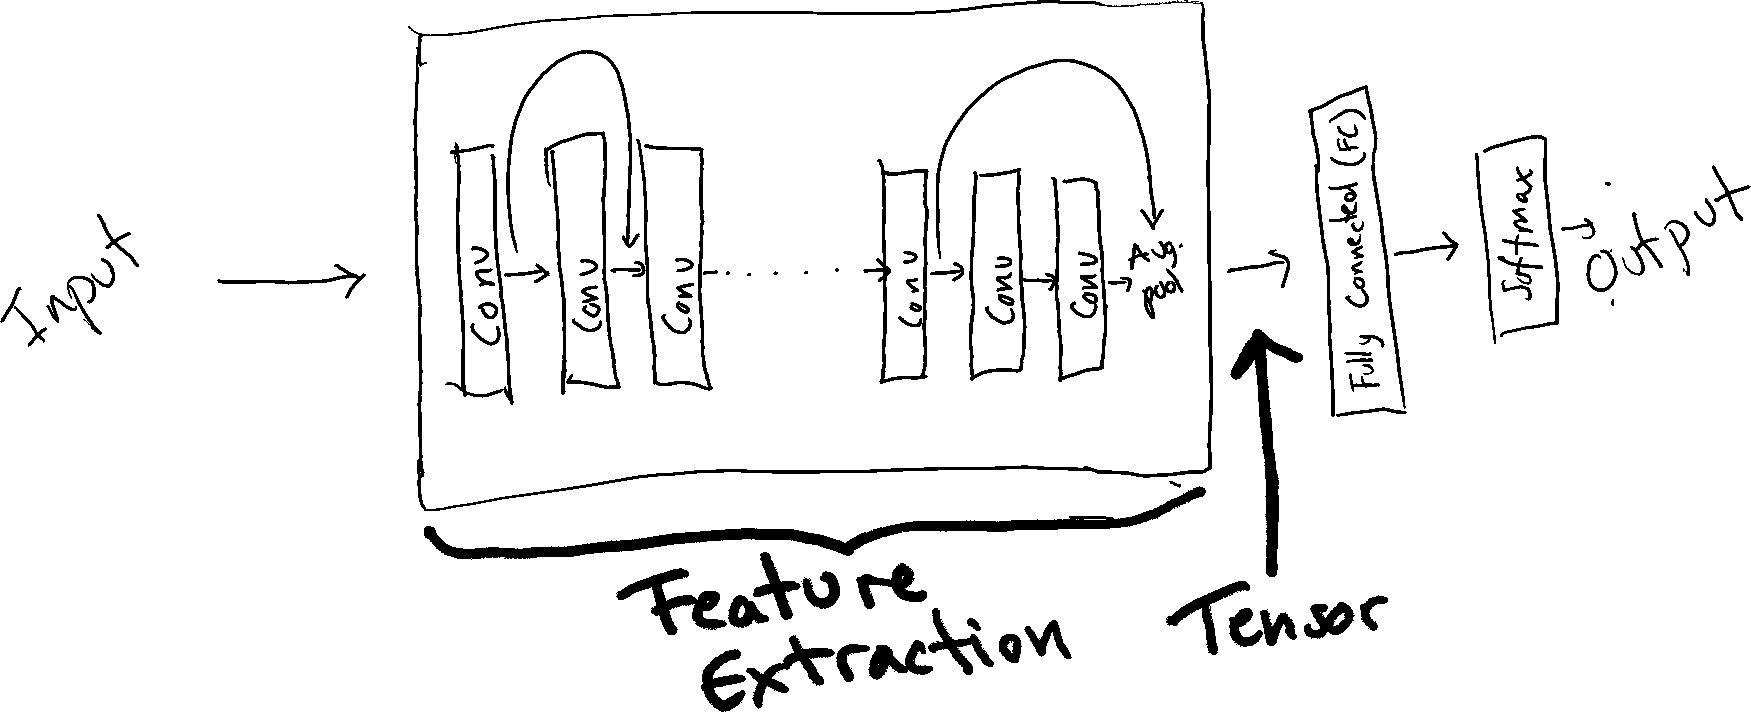 Input
Conv
Conv
Conv
Conv
Conv
Conv
Avg.
pool
Fully Connected (FC)
Softmax
Output
Feature
Extraction
Tensor